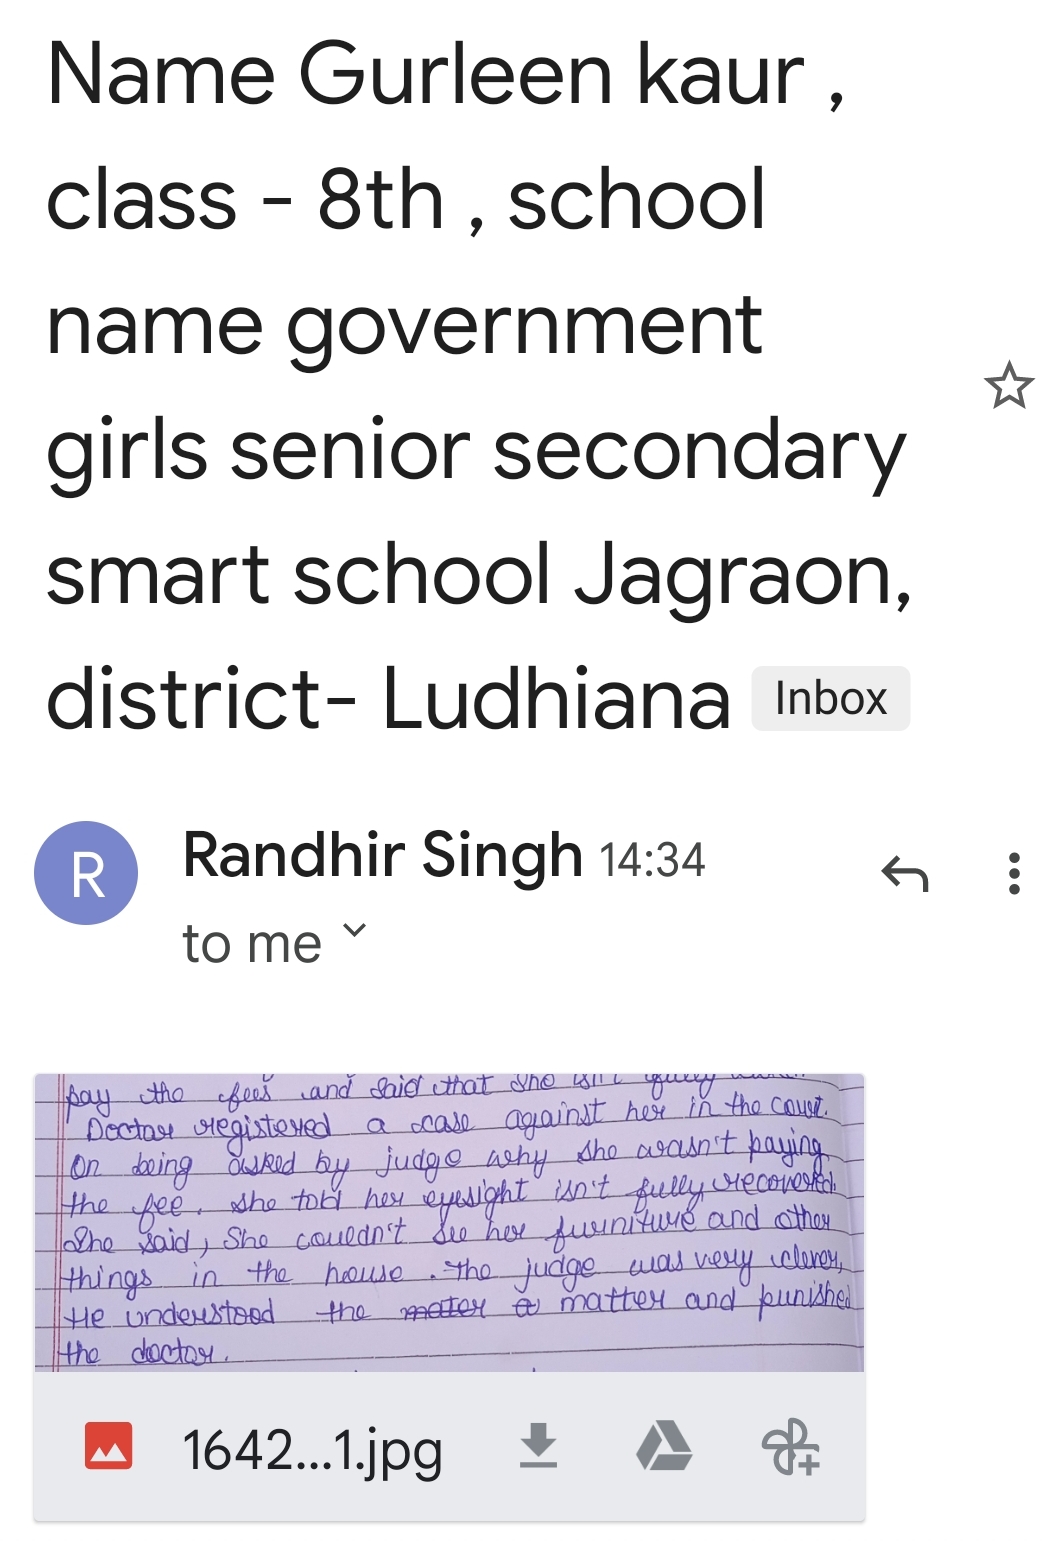 Name Gurleen kaur ,
class - 8th , school
name government
girls senior secondary
smart school Jagraon,
district- Ludhiana Inbox
R
Randhir Singh 14:34
to me
pay the fees and said that she isn't fully
Doctor registered a case against her in the court.
On being asked by judge why she wasn't paying
the fee. She told her eyesight isn't fully recovered.
She said, She couldn't see her furniture and other
things in the house. The judge was very clever,
He understood the mater a matter and punished
the doctor.
1642...1.jpg